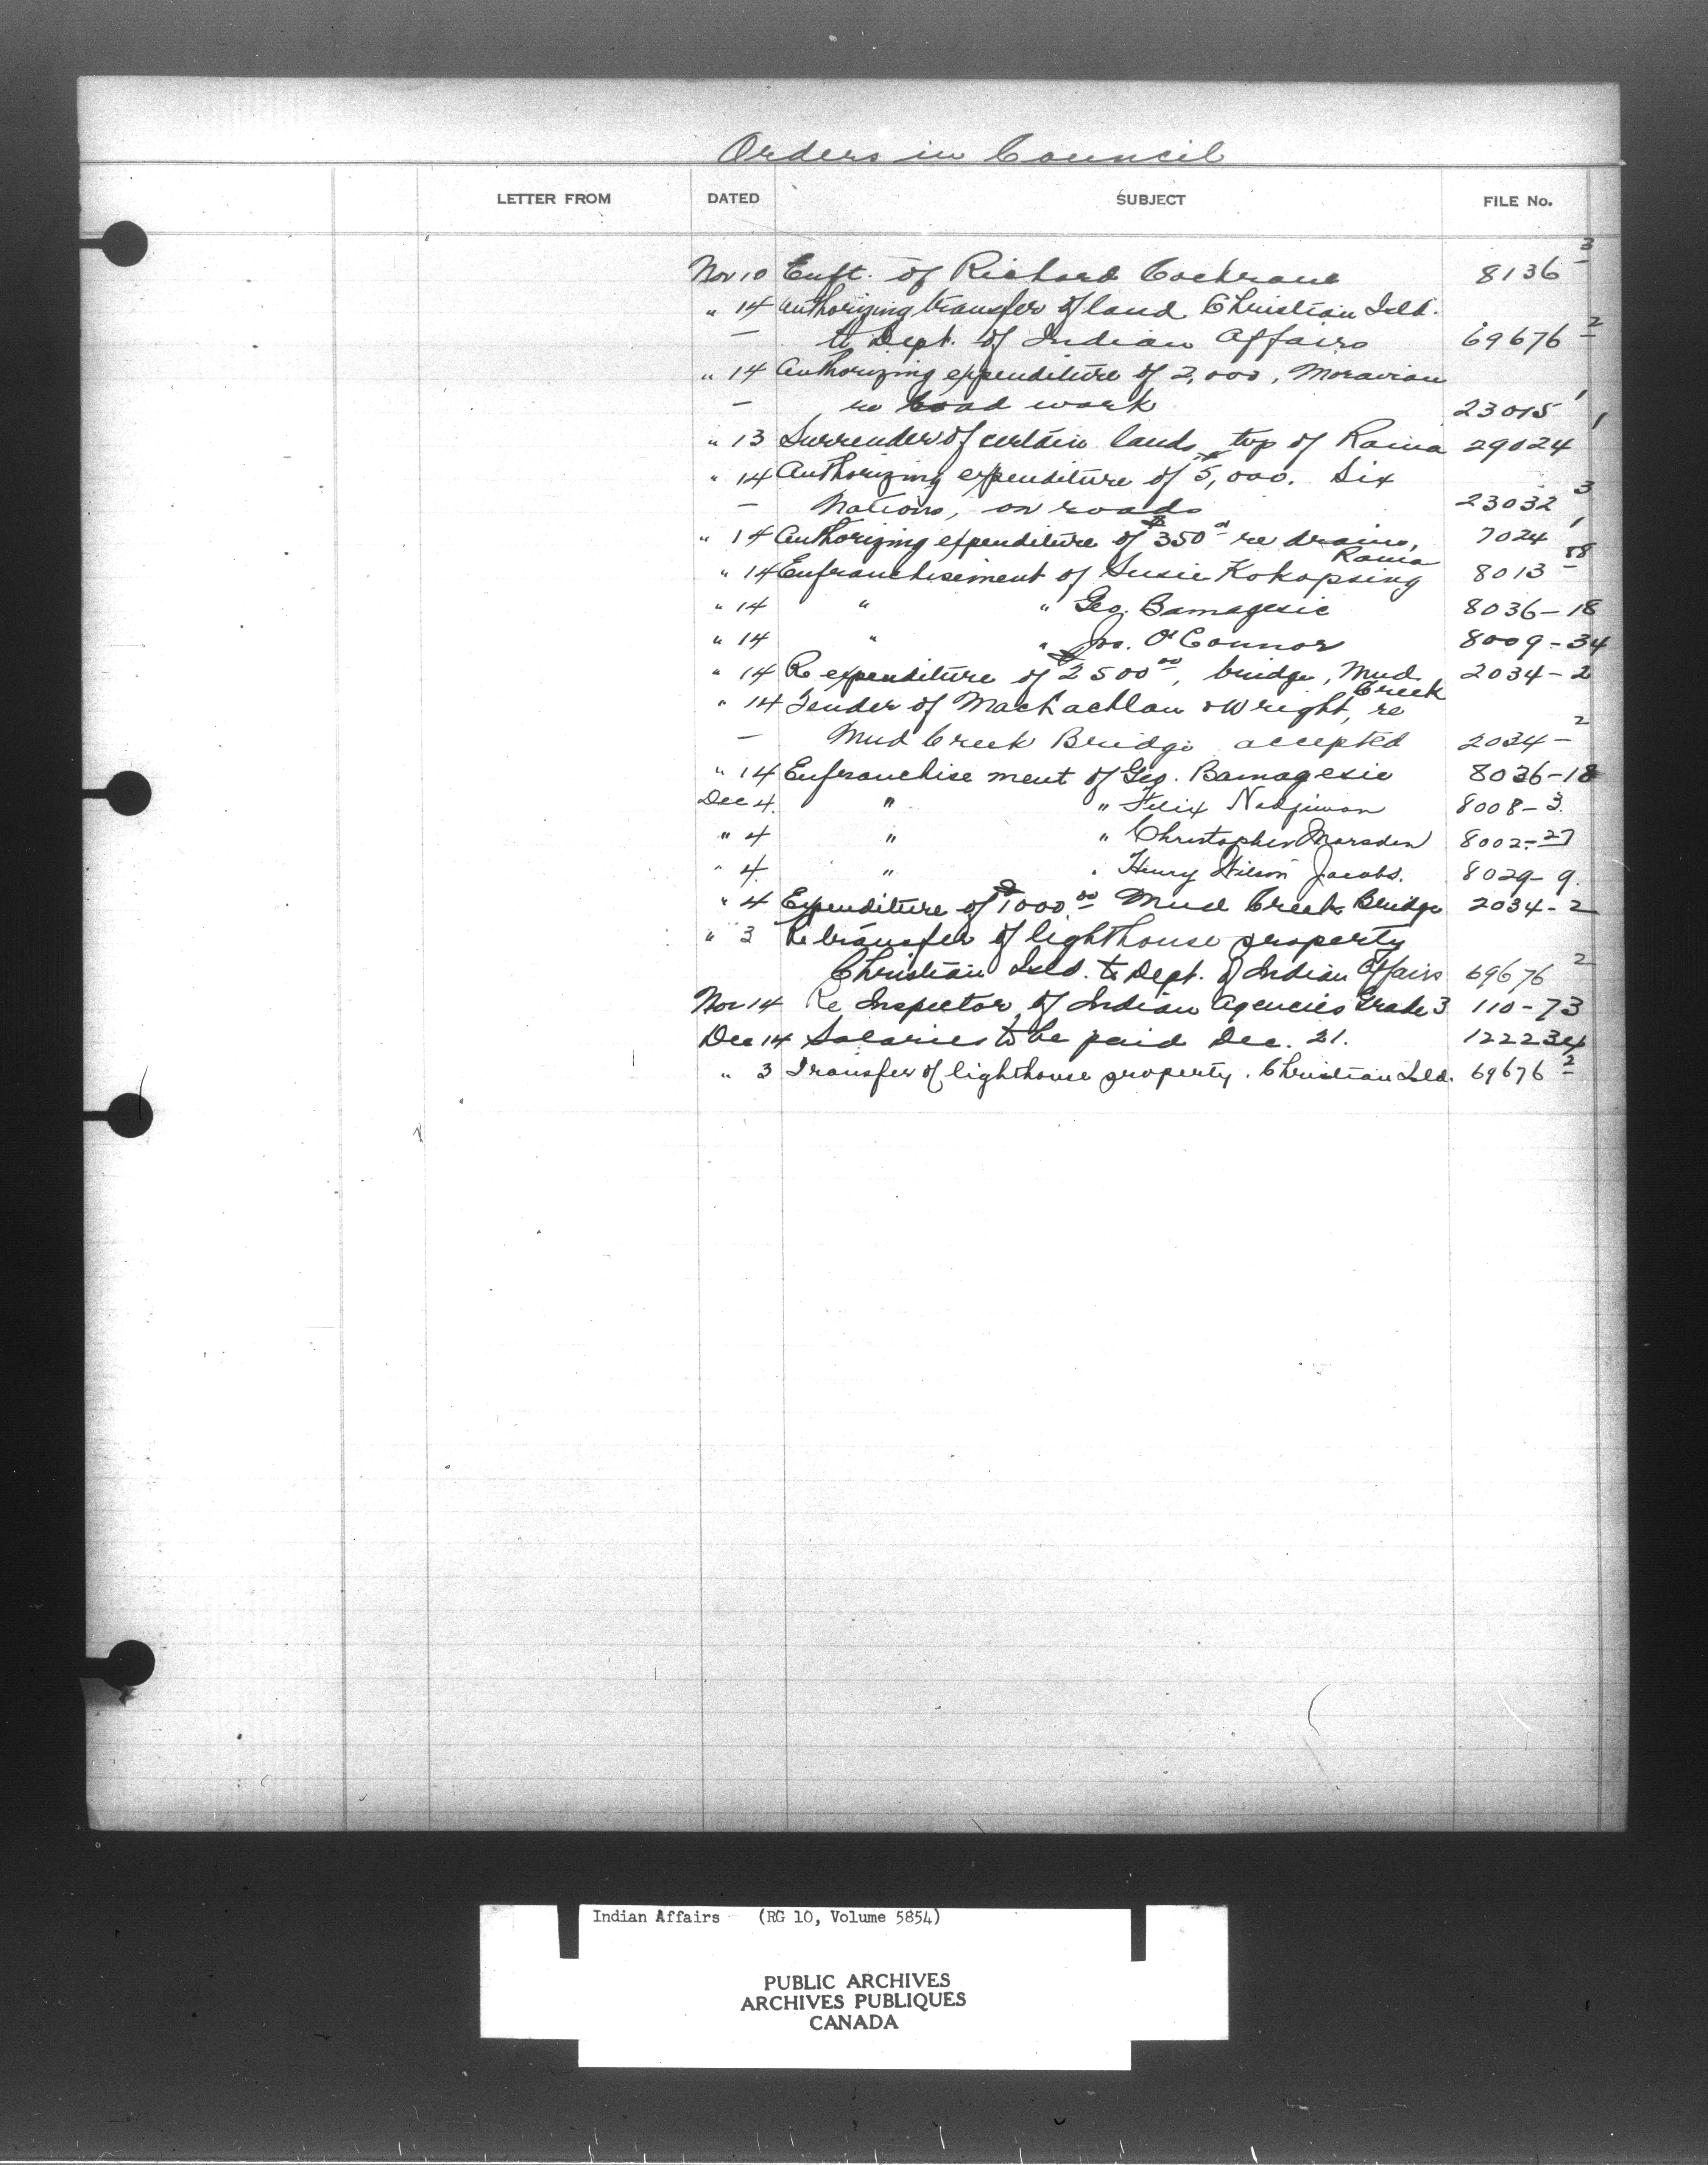 Orders in Council
LETTER FROM DATED SUBJECT FILE No.
Nov 10 Enft. of Richard Cochrane 8136 3
" 14 Authorizing transfer of land Christian Isld.
— to Dept. of Indian Affairs 69676 2
" 14 Authorizing expenditure of 2,000, Moravian
— re road work 23015 1
" 13 Surrender of certain lands twp of Rama 29024 1
" 14 Authorizing expenditure of $5,000. Six
— Nations, on roads 23032 3
" 14 Authorizing expenditure of $350 re drains, Rama 7024 1
" 14 Enfranchisement of Susie Kokopsing 8013 88
" 14 " " Geo. Bamagesic 8036-18
" 14 " " Jno. O'Connor 8009-34
" 14 Re expenditure of $2500 00, bridge, Mud Creek 2034-2
" 14 Tender of MacLachlan & Wright, re
— Mud Creek Bridge accepted 2034-2
" 14 Enfranchisement of Geo. Bamagesic 8036-18
Dec 4. " " Felix Nadjiwan 8008-3
" 4 " " Christopher Marsden 8002-27
" 4. " " Henry Wilson Jacobs. 8029-9.
" 4 Expenditure of $1000.00 Mud Creek Bridge 2034-2
" 3 Re transfer of lighthouse property
Christian Isld. to Dept. of Indian Affairs 69676 2
Nov 14 Re Inspector of Indian Agencies Grade 3 110-73
Dec 14 Salaries to be paid Dec. 21. 122234
" 3 Transfer of lighthouse property. Christian Isld. 69676 2
Indian Affairs (RG 10, Volume 5854)
PUBLIC ARCHIVES
ARCHIVES PUBLIQUES
CANADA